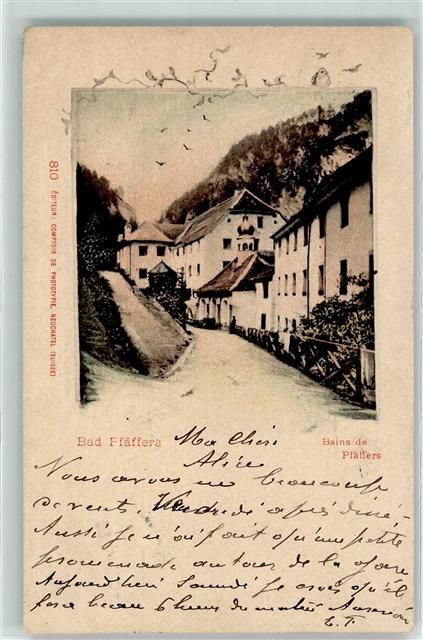 810 ÉDITEUR: COMPTOIR DE PHOTOTYPIE, NEUCHATEL (SUISSE)
Bad Pfäffers
Bains de
Pfäffers
Ma Chère
Alice
Nous avons eu beaucoup
de vent, Vendredi après dîné
Aussi je n'ai fait qu'une petite
promenade autour de la gare
Aujourd'hui Samedi je crois qu'il
fera beau 6 heures du matin
E. F.